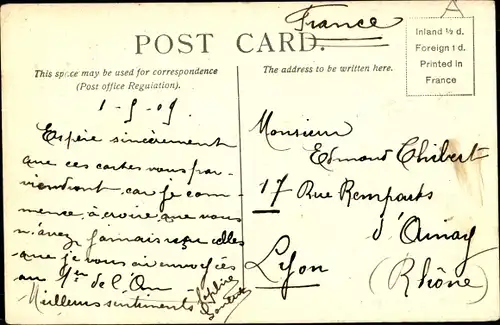 France
A
POST CARD.
Inland ½ d.
Foreign 1 d.
Printed in
France
This space may be used for correspondence
(Post office Regulation).
The address to be written here.
1-5-09
Espère sincèrement
que ces cartes vous par-
viendront, car je com-
mence, à croire, que vous
n'avez jamais reçu celles
que je vous ai envoyées
au 1er de l'An
Meilleurs sentiments
Monsieur
Edmond Thibert
17 Rue Remparts
d'Ainay
Lyon
(Rhône)